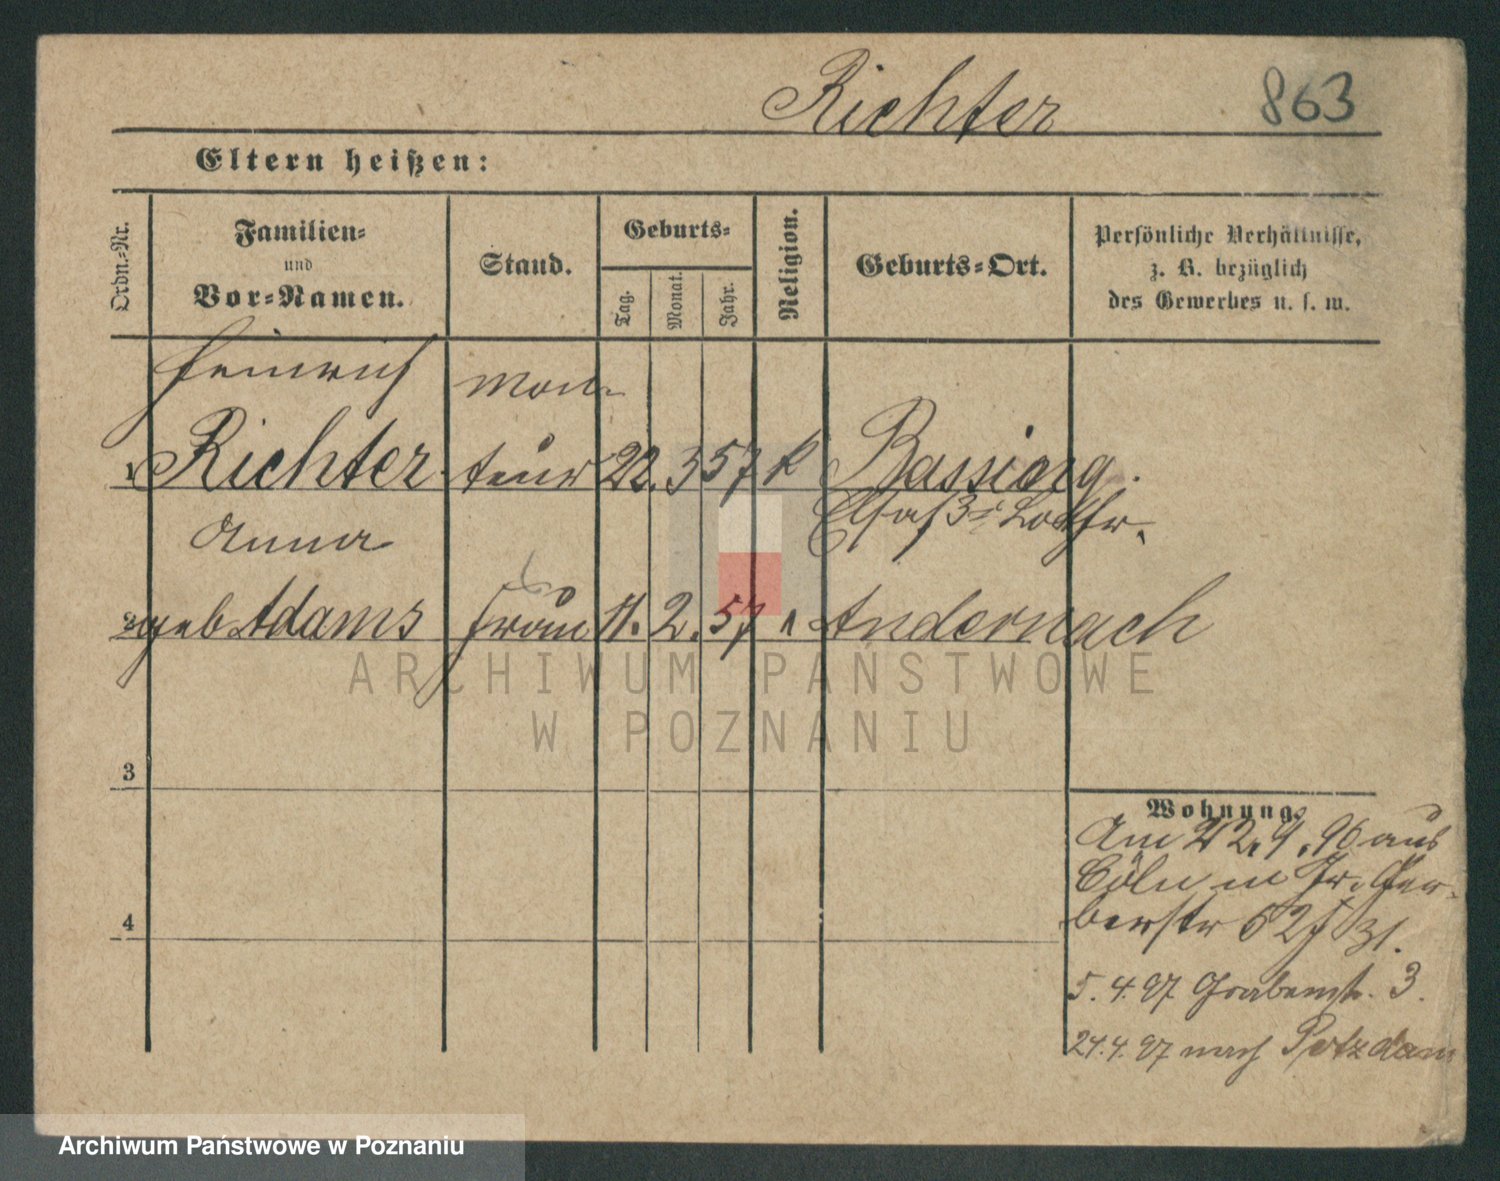 Richter 863
Eltern heißen:
Ordn.-Nr. Familien- und Vor-Namen. Stand. Geburts- Tag. Monat. Jahr. Religion. Geburts-Ort. Persönliche Verhältnisse, z. B. bezüglich des Gewerbes u. s. w.
Heinrich Mon-
1 Richter teur 22. 3 57 k
Elsaß Lothr.
Anna
2 geb Adams Frau 11. 2. 57 Andernach
3
4
Wohnung.
Am 22. 9. 96 aus
Cöln in Gr. Ger-
berstr
5. 4. 97 Grabenstr. 3.
24. 4. 97 nach Potzdam
ARCHIWUM PAŃSTWOWE
W POZNANIU
Archiwum Państwowe w Poznaniu